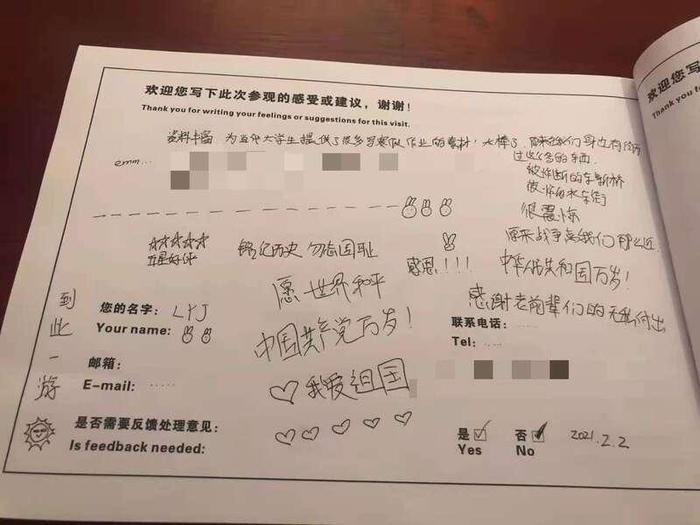 欢迎您写下此次参观的感受或建议，谢谢！
Thank you for writing your feelings or suggestions for this visit.
资料丰富 为当代大学生提供了很多写寒假作业的素材，太棒了
原来我们
过这么多的东西
emm...
被炸断的车
很震惊
原来战争离我们那么近
☆☆☆☆☆
五星好评
铭记历史 勿忘国耻
感恩！！！
中华人民共和国万岁！
愿世界和平
感谢老前辈们的无私付出
到此一游
您的名字：LYJ
Your name:
中国共产党万岁！
联系电话：
Tel:
邮箱：
E-mail:
♡我爱祖国
是否需要反馈处理意见：
Is feedback needed:
♡♡♡♡♡
是 ☑ 否 ☑ 2021.2.2
Yes No
欢迎您写
Thank you for